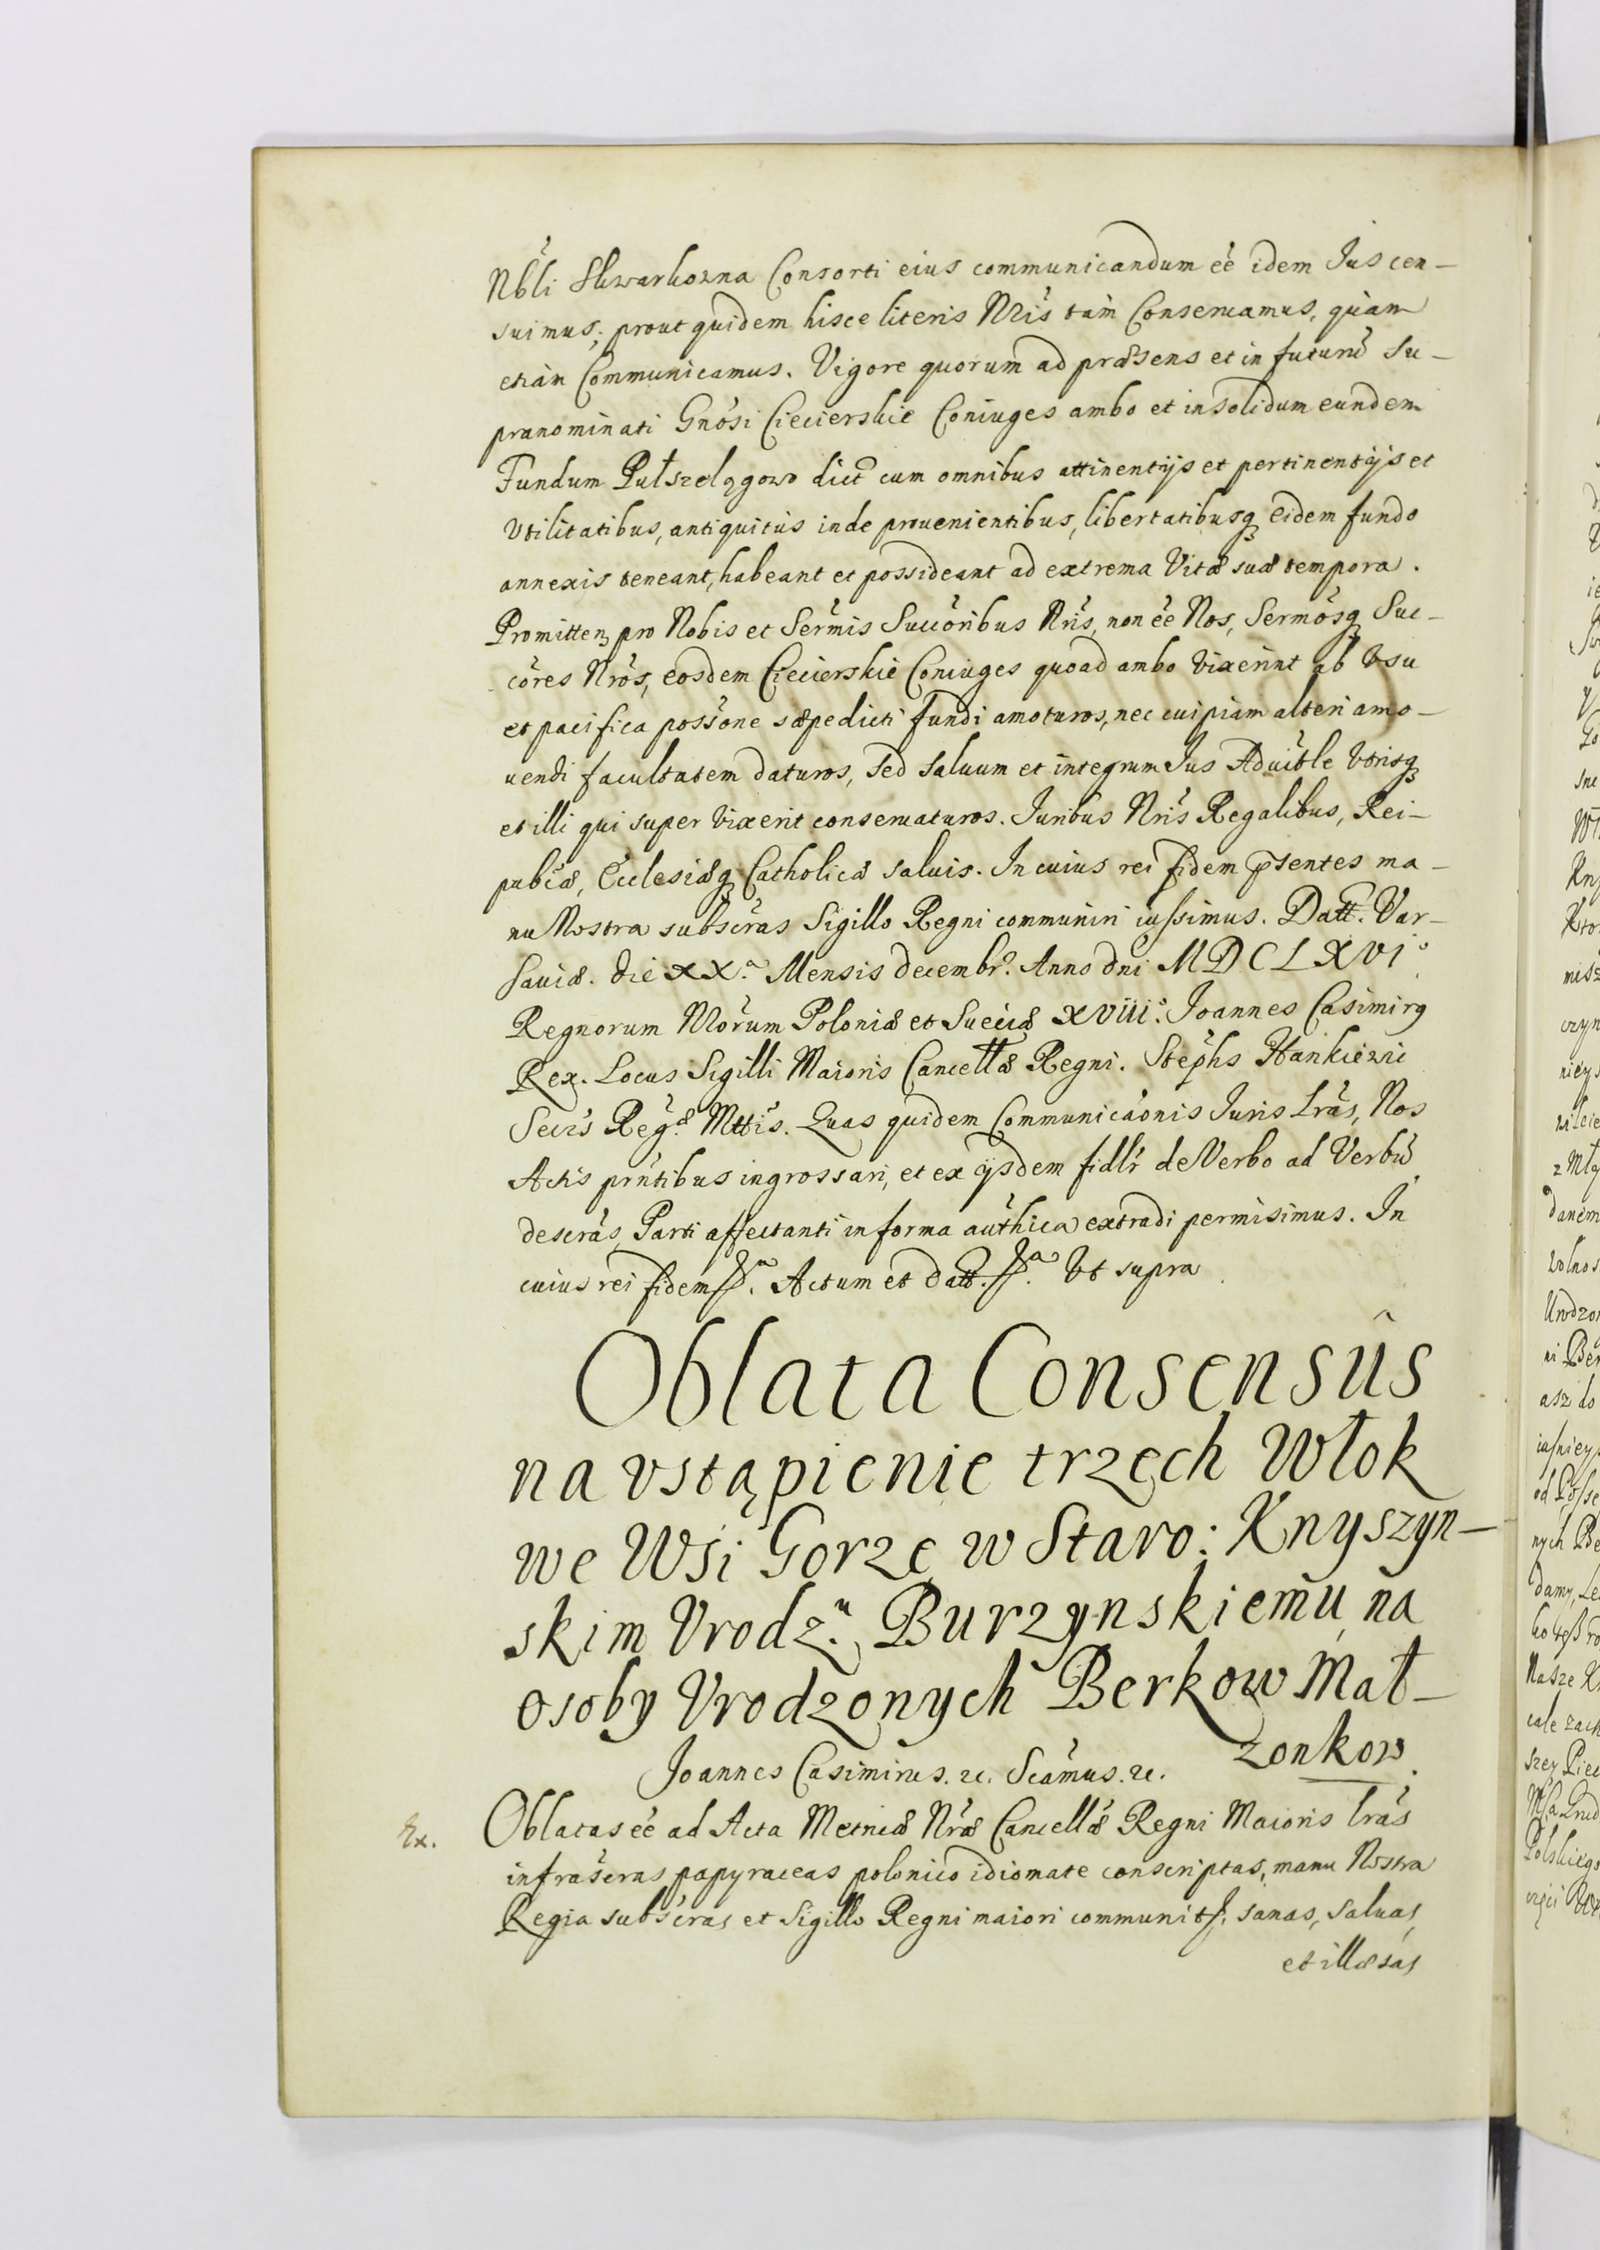 Nb̃li Skwarkowna Consorti eius communicandum eẽ idem Ius cen-
suimus, prout quidem hisce literis Nr̃is tàm Conseruamus, quàm
etiàm Communicamus. Vigore quorum ad præsens et in futurũ su-
pranominati Gnõsi Ciecierskie Coniuges ambo et insolidum eundem
Fundum Pułszelągowo dict̃ cum omnibus attinentijs et pertinentijs et
Vtilitatibus, antiquitùs inde prouenientibus, libertatibusq eidem fundo
annexis teneant, habeant et possideant ad extrema Vitæ suæ tempora.
Promitten pro Nobis et Serm̃is Succõribus Nr̃is, non eẽ Nos, Serm̃osq Suc-
cõres Nr̃os, eosdem Ciecierskie Coniuges quoad ambo Vixerint ab Vsu
et pacifica possõne sæpedicti fundi amoturos, nec cuipiam alteri amo-
uendi facultatem daturos, sed saluum et integrum Ius Aduitĩle Vtrisq
et illi qui super Vixerit conseruaturos. Iuribus Nr̃is Regalibus, Rei-
pubcæ, Ecclesiæq Catholicæ saluis. In cuius rei fidem p̃sentes ma-
nu Nostra subscr̃as Sigillo Regni communiri iussimus. Datt. Var-
sauiæ. die XX.a Mensis decembr̃. Anno dni MDCLXVI.o
Regnorum Nõrum Poloniæ et Sueciæ XVIII.o Joannes Casimirq
Rex. Locus Sigilli Maioris Cancellæ Regni. Stephs Hankiewic
Secr̃s Reg.æ Mttis. Quas quidem Communicãonis Iuris Lr̃as, Nos
Actis prñtibus ingrossari, et ex ijsdem fidlr̃ de Verbo ad Verbũ
descr̃as, Parti affectanti in forma autħica extradi permisimus. In
cuius rei fidem p.a Actum et datt. p.a Vt supra
Oblata Consensûs
na vstąpienie trzech Włok
we Wsi Gorze w Staro: Knyszyn-
skim Vrodz.u Burzynskiemu, na
osoby Vrodzonych Berkow Mał-
zonkow.
Joannes Casimirus. &c. Scãmus. &c.
Ex. Oblatas eẽ ad Acta Metricæ Nr̃æ Cancellæ Regni Maioris lr̃as
infrascr̃as papyraceas polonico idiomate conscriptas, manu Nostra
Regia subscr̃as et Sigillo Regni maiori communit. sanas, saluas
et illæsas